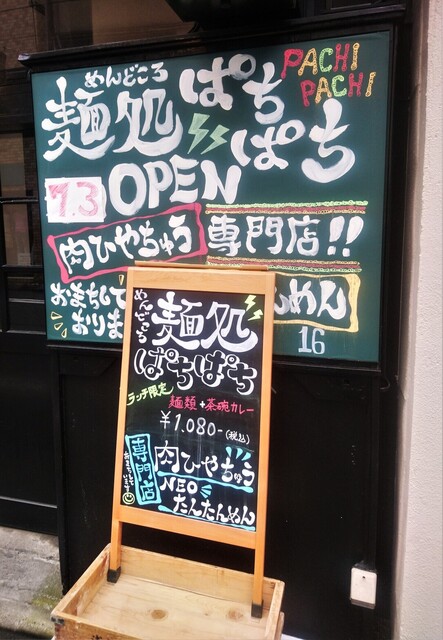 めんどころ
麺処
ぱちぱち
PACHI
PACHI
OPEN
7.3
肉ひやちゅう
専門店!!
お待ちして
おりま
んめん
16
めんどころ
麺処
ぱちぱち
ランチ限定
麺類+茶碗カレー
¥1.080-(税込)
専門店
肉ひやちゅう
NEO
たんたんめん